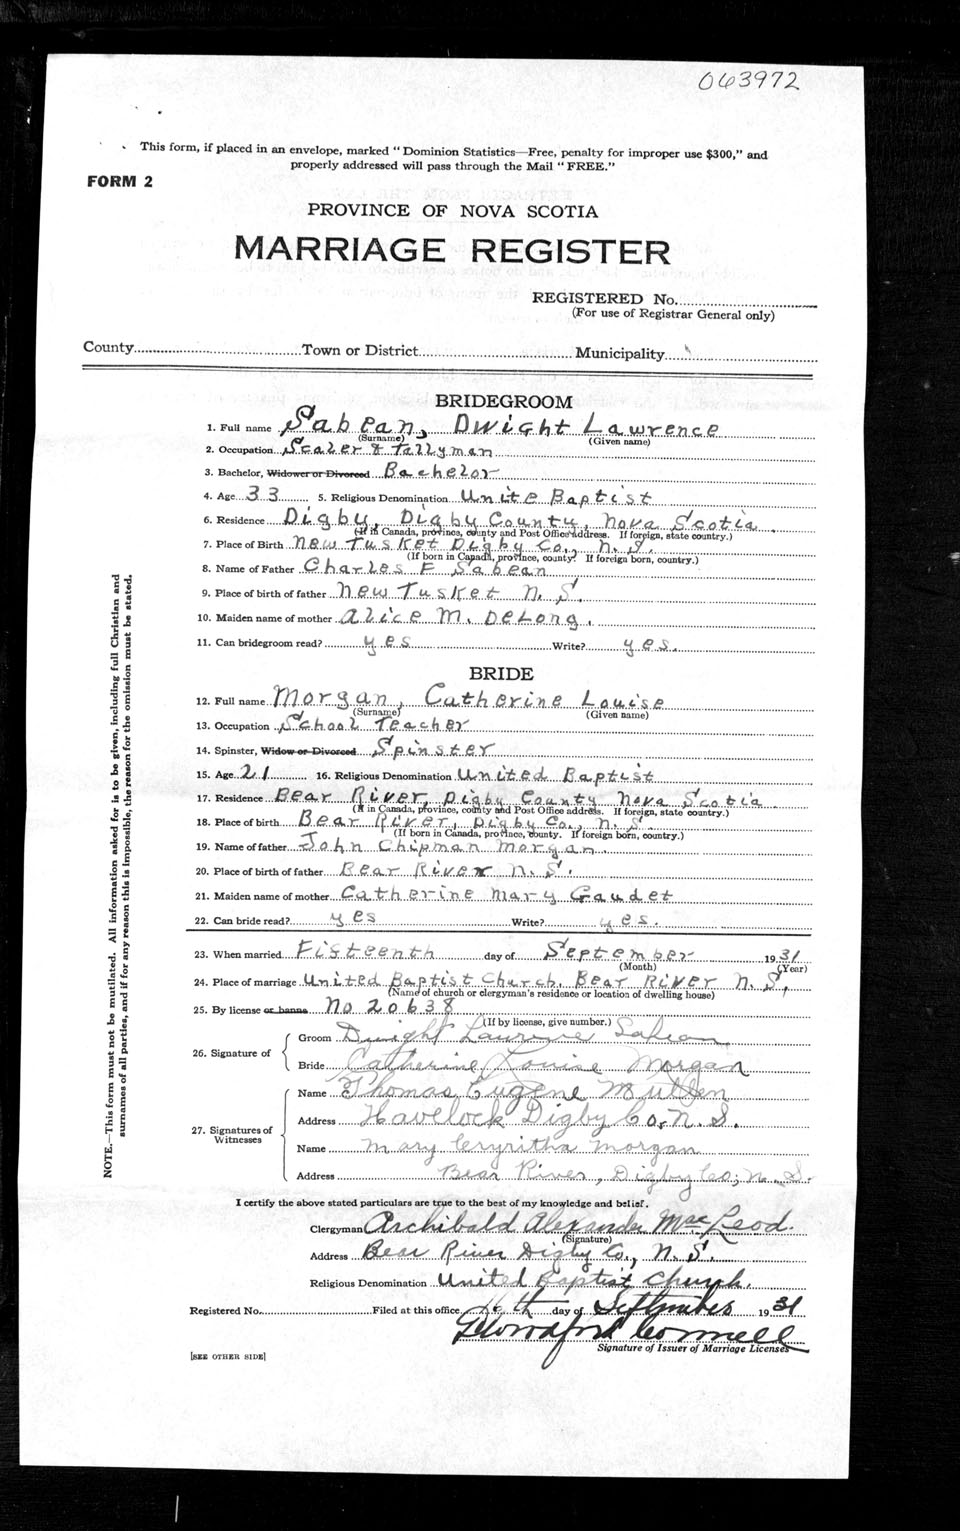 063972
This form, if placed in an envelope, marked "Dominion Statistics—Free, penalty for improper use $300," and
properly addressed will pass through the Mail "FREE."
FORM 2
PROVINCE OF NOVA SCOTIA
MARRIAGE REGISTER
REGISTERED No.
(For use of Registrar General only)
County Town or District Municipality
BRIDEGROOM
1. Full name Sabean, Dwight Lawrence
(Surname) (Given name)
2. Occupation Scaler & Tallyman
3. Bachelor, Widower or Divorced Bachelor
4. Age 33 5. Religious Denomination Unite Baptist
6. Residence Digby, Digby County, Nova Scotia
(If in Canada, province, county and Post Office address. If foreign, state country.)
7. Place of Birth New Tusket Digby Co., N. S.
(If born in Canada, province, county. If foreign born, country.)
8. Name of Father Charles F Sabean
9. Place of birth of father New Tusket N. S.
10. Maiden name of mother Alice M. DeLong.
11. Can bridegroom read? yes Write? yes.
BRIDE
12. Full name Morgan, Catherine Louise
(Surname) (Given name)
13. Occupation School Teacher
14. Spinster, Widow or Divorced Spinster
15. Age 21 16. Religious Denomination United Baptist
17. Residence Bear River, Digby County Nova Scotia
(If in Canada, province, county and Post Office address. If foreign, state country.)
18. Place of birth Bear River, Digby Co., N. S.
(If born in Canada, province, county. If foreign born, country.)
19. Name of father John Chipman Morgan.
20. Place of birth of father Bear River N. S.
21. Maiden name of mother Catherine Mary Gaudet
22. Can bride read? yes Write? yes.
23. When married Fisteenth day of September 1931
(Month) (Year)
24. Place of marriage United Baptist Church, Bear River N. S.
(Name of church or clergyman's residence or location of dwelling house)
25. By license or banns No 20638
(If by license, give number.)
26. Signature of
Groom Dwight Laurence Sabean
Bride Catherine Louise Morgan
27. Signatures of Witnesses
Name Thomas Eugene Mullen
Address Havelock Digby Co, N. S.
Name Mary Morgan
Address Bear River, Digby Co; N. S.
I certify the above stated particulars are true to the best of my knowledge and belief.
Clergyman Archibald Alexander MacLeod.
(Signature)
Address Bear River Digby Co., N. S.
Religious Denomination United Baptist Church.
Registered No. Filed at this office 16th day of September 1931
Signature of Issuer of Marriage Licenses
[SEE OTHER SIDE]
NOTE.—This form must not be mutilated. All information asked for is to be given, including full Christian and
surnames of all parties, and if for any reason this is impossible, the reason for the omission must be stated.